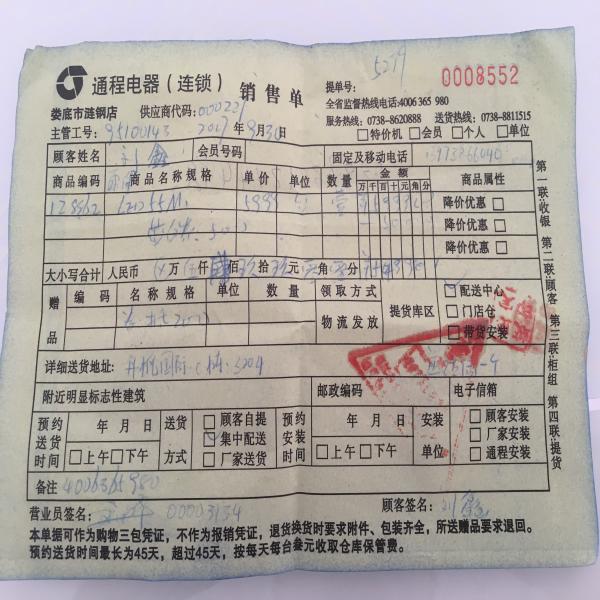 5299
通程电器（连锁） 销售单
提单号：
0008552
全省监督热线电话:4006 365 980
娄底市涟钢店 供应商代码:000221
服务热线：0738-8620888 送货热线：0738-8811515
主管工号: 95100143 2017年9月30
□特价机 □会员 □个人 □单位
顾客姓名 刘鑫 会员号码 固定及移动电话
商品编码 商品名称规格 单价 单位 数量 金额 商品属性
万千百十元角分
128962 5999 台 壹 降价优惠 □
降价优惠 □
降价优惠 □
大小写合计 人民币 万 仟 佰 玖拾 玖元 零角 零分
赠品 编码 名称规格 单位 数量 领取方式 提货库区 配送中心
物流发放 □门店仓
□带货安装
详细送货地址: 国际C栋3204
附近明显标志性建筑 邮政编码 电子信箱
预约送货时间 年 月 日 □上午□下午
送货方式 □顾客自提 集中配送 □厂家送货
预约安装时间 年 月 日 □上午□下午
安装单位 □顾客安装 □厂家安装 □通程安装
备注 4006365980
营业员签名: 00003134 顾客签名: 刘鑫
本单据可作为购物三包凭证，不作为报销凭证，退货换货时要求附件、包装齐全，所送赠品要求退回。
预约送货时间最长为45天，超过45天，按每天每台叁元收取仓库保管费。
第一联:收银 第二联:顾客 第三联:柜组 第四联:提货